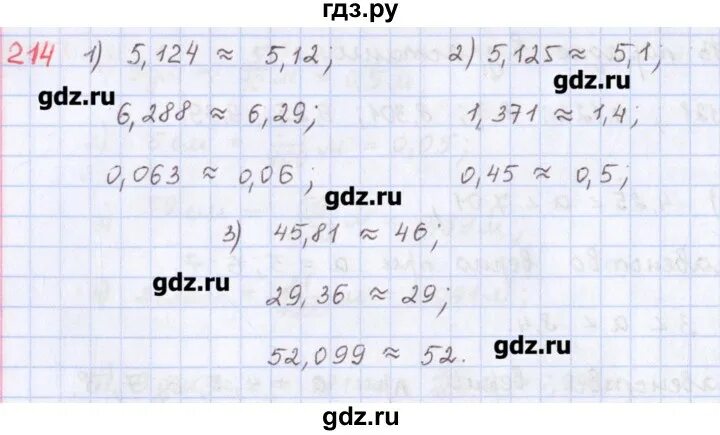 гдз.ру
214 1) 5,124 ≈ 5,12; 2) 5,125 ≈ 5,1;
gdz.ru gdz.ru
6,288 ≈ 6,29; 1,371 ≈ 1,4;
0,063 ≈ 0,06; 0,45 ≈ 0,5;
gdz.ru
3) 45,81 ≈ 46;
gdz.ru
29,36 ≈ 29;
gdz.ru
52,099 ≈ 52.
gdz.ru